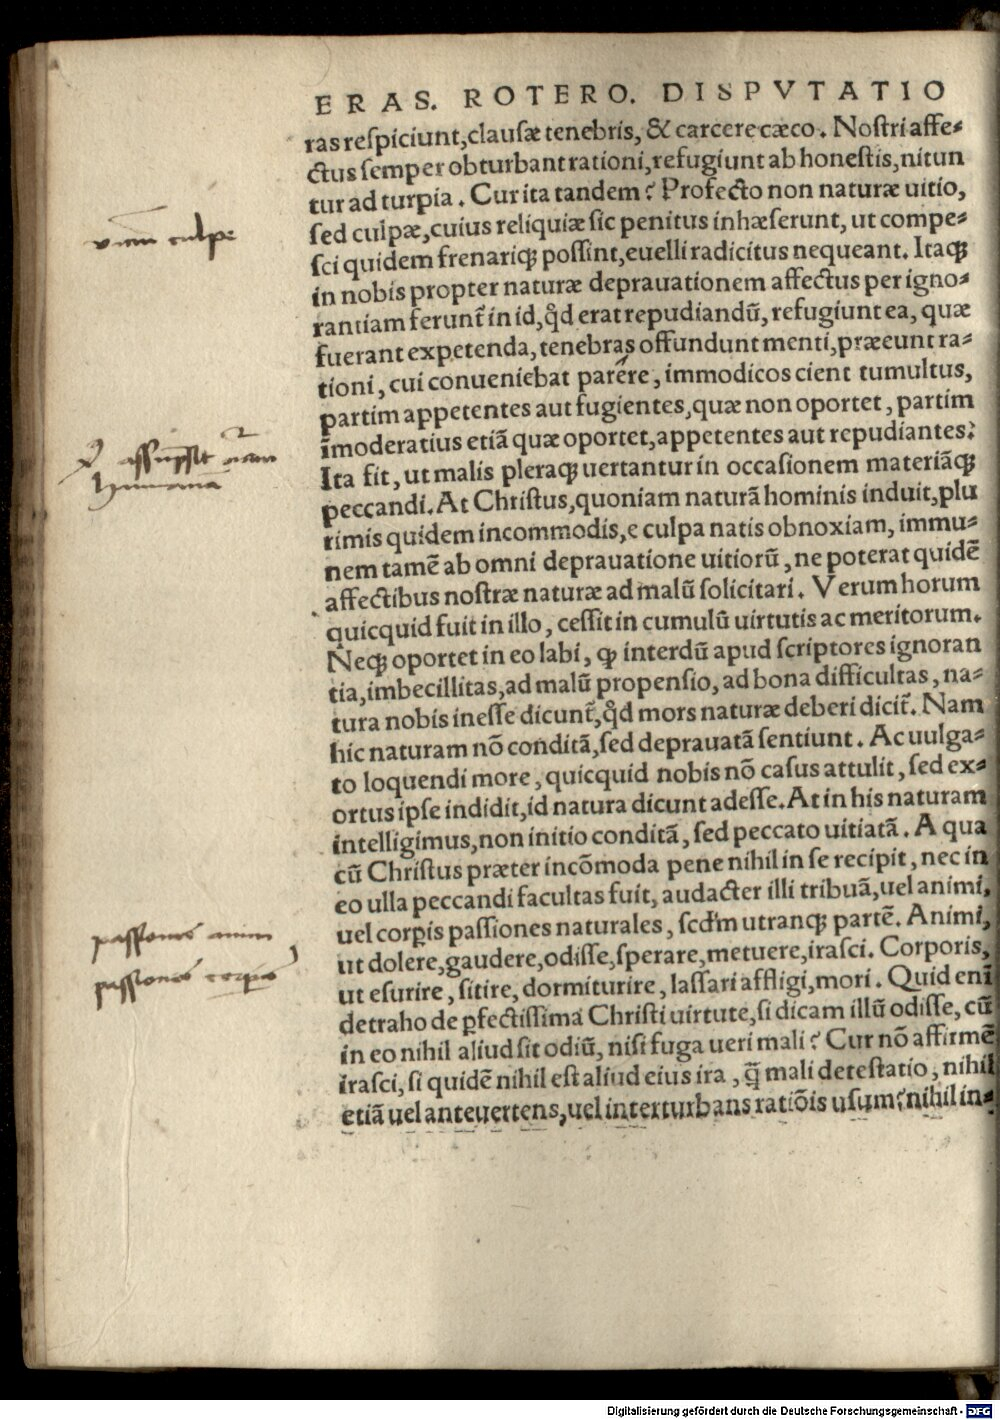 ERAS. ROTERO. DISPVTATIO
ras respiciunt, clausæ tenebris, & carcere cæco. Nostri affe-
ctus semper obturbant rationi, refugiunt ab honestis, nitun
tur ad turpia. Cur ita tandem? Profecto non naturæ uitio,
sed culpæ, cuius reliquiæ sic penitus inhæserunt, ut compe-
vicium culpe
sci quidem frenariqꝫ possint, euelli radicitus nequeant. Itaqꝫ
in nobis propter naturæ deprauationem affectus per igno-
rantiam ferunt̃ in id, qd̃ erat repudiandũ, refugiunt ea, quæ
fuerant expetenda, tenebras offundunt menti, præeunt ra-
tioni, cui conueniebat parere, immodicos cient tumultus,
partim appetentes aut fugientes, quæ non oportet, partim
ĩmoderatius etiã quæ oportet, appetentes aut repudiantes.
assũpsit
humana
Ita fit, ut malis pleraqꝫ uertantur in occasionem materiãqꝫ
peccandi. At Christus, quoniam naturã hominis induit, plu
rimis quidem incommodis, e culpa natis obnoxiam, immu-
nem tamẽ ab omni deprauatione uitiorũ, ne poterat quidẽ
affectibus nostræ naturæ ad malũ solicitari. Verum horum
quicquid fuit in illo, cessit in cumulũ uirtutis ac meritorum.
Neqꝫ oportet in eo labi, ꝙ interdũ apud scriptores ignoran
tia, imbecillitas, ad malũ propensio, ad bona difficultas, na-
tura nobis inesse dicunt̃, qd̃ mors naturæ deberi dicit̃. Nam
hic naturam nõ conditã, sed deprauatã sentiunt. Ac uulga-
to loquendi more, quicquid nobis nõ casus attulit, sed ex-
ortus ipse indidit, id natura dicunt adesse. At in his naturam
intelligimus, non initio conditã, sed peccato uitiatã. A qua
cũ Christus præter incõmoda pene nihil in se recipit, nec in
eo ulla peccandi facultas fuit, audacter illi tribuã, uel animi,
uel corpis passiones naturales, scd̃m utranqꝫ partẽ. Animi,
passiones animi
ut dolere, gaudere, odisse, sperare, metuere, irasci. Corporis,
passiones corporis
ut esurire, sitire, dormiturire, lassari affligi, mori. Quid enĩ
detraho de ꝑfectissima Christi uirtute, si dicam illũ odisse, cũ
in eo nihil aliud sit odiũ, nisi fuga ueri mali? Cur nõ affirmẽ
irasci, si quidẽ nihil est aliud eius ira, q̃ mali detestatio, nihil
etiã uel anteuertens, uel interturbans ratiõis usum? nihil in-
Digitalisierung gefördert durch die Deutsche Forschungsgemeinschaft - DFG